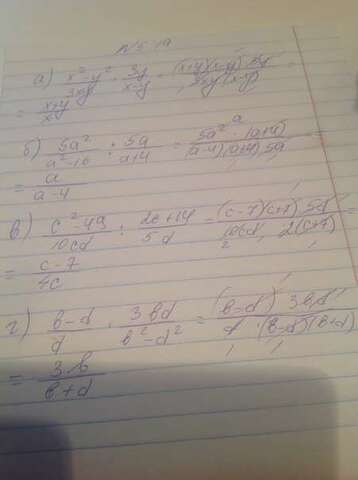 N 5.19
а) x²-y²/3xy · 3y/x-y = (x+y)(x-y) 3y/3xy(x-y) =
= x+y/x
б) 5a²/a²-16 : 5a/a+4 = 5a² · (a+4)/(a-4)(a+4) 5a
= a/a-4
в) c²-49/10cd : 2c+14/5d = (c-7)(c+7) 5d/10cd · 2(c+7)
= c-7/4c
г) b-d/d · 3bd/b²-d² = (b-d) 3bd/d · (b-d)(b+d)
= 3b/b+d